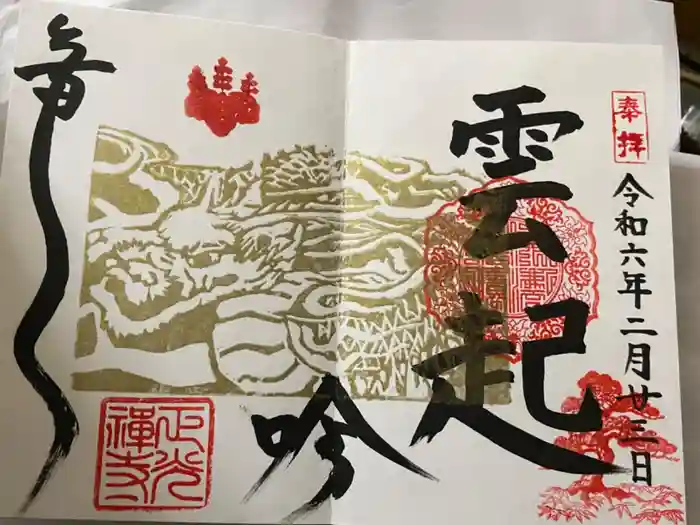 奉拝
令和六年二月廿三日
雲起
竜
吟
正光
禪寺